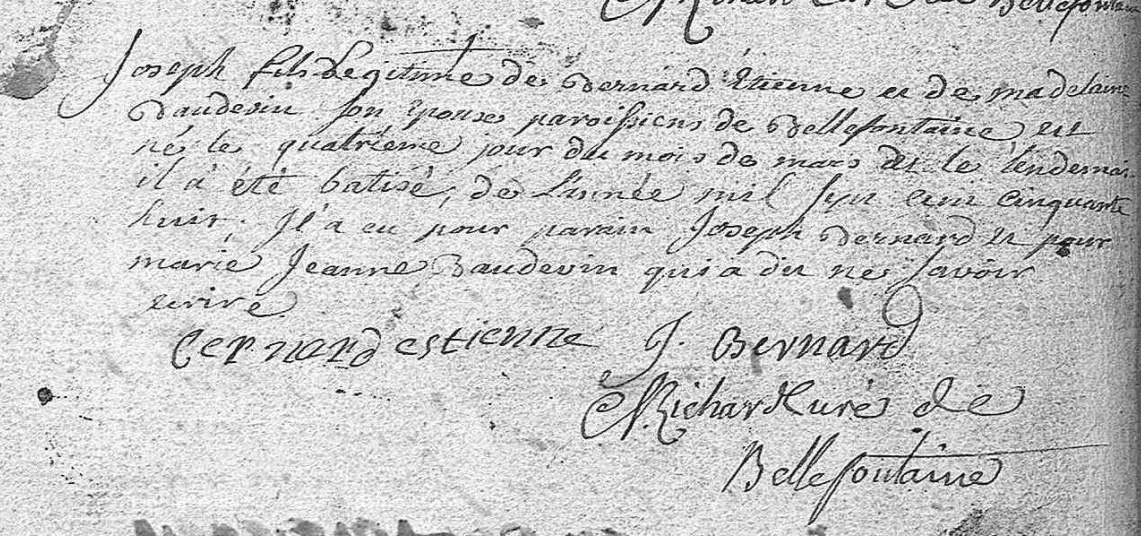 Curé de Bellefontaine
Joseph fils Legitime de Bernard Etienne et de madelaine
Baudevin son epouse paroissiens de Bellefontaine est
né le quatrieme jour du mois de mars et le lendemain
il a été batisé, de L'année mil sept cent cinquante
huit, Il a eu pour parain Joseph Bernard et pour
marié Jeanne Baudevin qui a dit ne savoir
ecrire
Bernard estienne J. Bernard
N. Richard Curé de
Bellefontaine